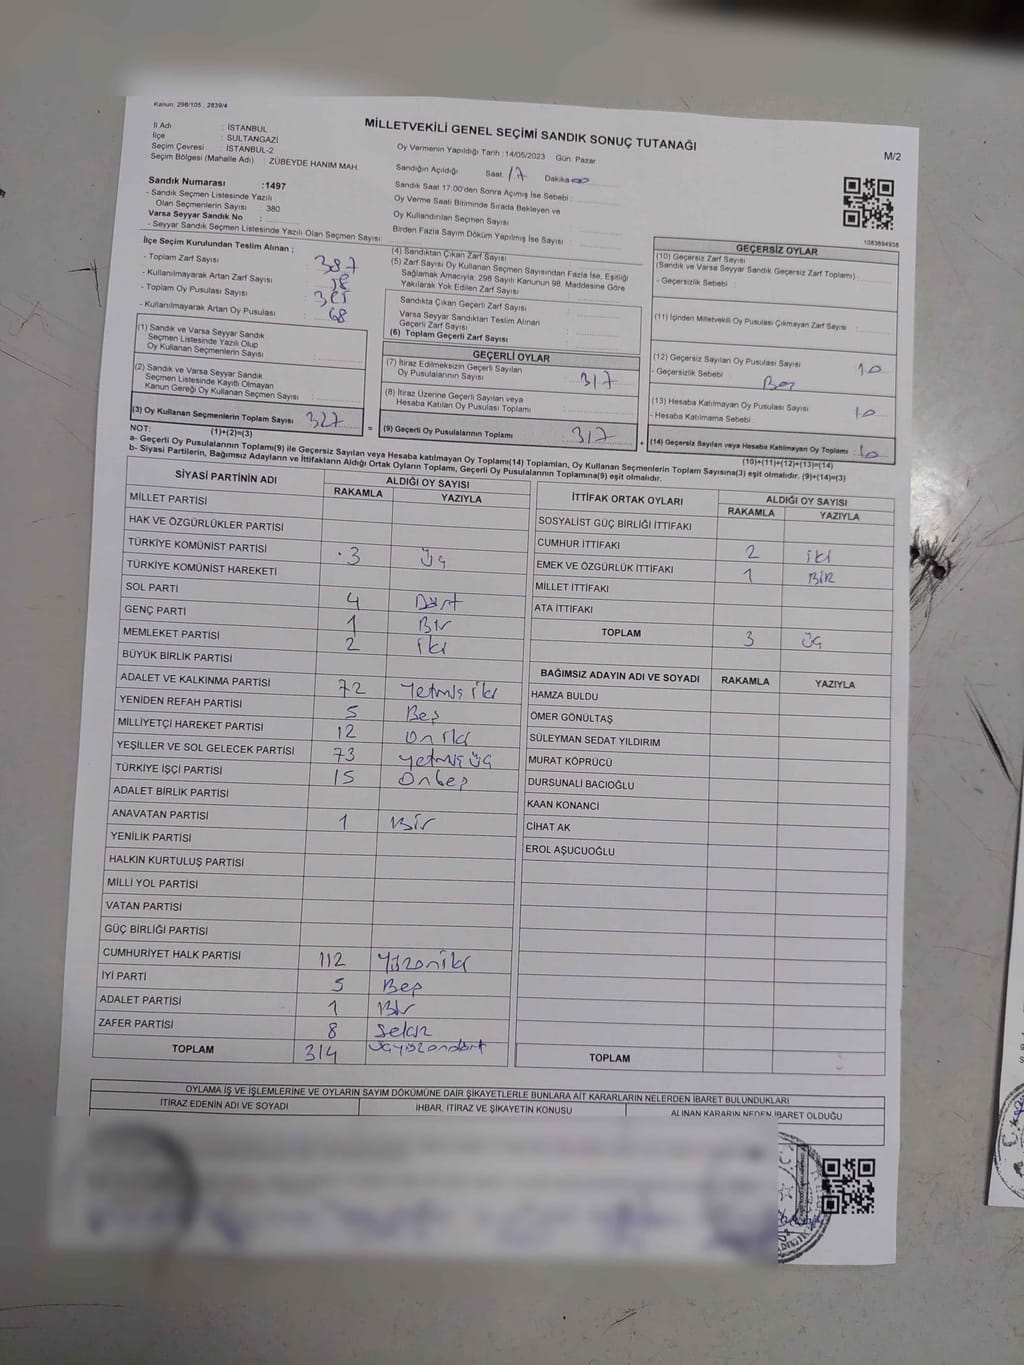 Kanun: 298/105 , 2839/4
MİLLETVEKİLİ GENEL SEÇİMİ SANDIK SONUÇ TUTANAĞI
M/2
İl Adı : İSTANBUL
İlçe : SULTANGAZİ
Seçim Çevresi : İSTANBUL-2
Seçim Bölgesi (Mahalle Adı) : ZÜBEYDE HANIM MAH.
Sandık Numarası :1497
- Sandık Seçmen Listesinde Yazılı
Olan Seçmenlerin Sayısı : 380
Varsa Seyyar Sandık No :
- Seyyar Sandık Seçmen Listesinde Yazılı Olan Seçmen Sayısı:
Oy Vermenin Yapıldığı Tarih :14/05/2023 Gün: Pazar
Sandığın Açıldığı Saat: 17 Dakika: 00
Sandık Saat 17.00'den Sonra Açımış İse Sebebi :
Oy Verme Saati Bitiminde Sırada Bekleyen ve
Oy Kullandırılan Seçmen Sayısı :
Birden Fazla Sayım Döküm Yapılmış İse Sayısı :
1083694938
İlçe Seçim Kurulundan Teslim Alınan ;
- Toplam Zarf Sayısı : 387
- Kullanılmayarak Artan Zarf Sayısı :
- Toplam Oy Pusulası Sayısı :
- Kullanılmayarak Artan Oy Pusulası : 68
(1) Sandık ve Varsa Seyyar Sandık
Seçmen Listesinde Yazılı Olup
Oy Kullanan Seçmenlerin Sayısı :
(2) Sandık ve Varsa Seyyar Sandık
Seçmen Listesinde Kayıtlı Olmayan
Kanun Gereği Oy Kullanan Seçmen Sayısı :
(3) Oy Kullanan Seçmenlerin Toplam Sayısı : 327
(1)+(2)=(3)
(4) Sandıktan Çıkan Zarf Sayısı :
(5) Zarf Sayısı Oy Kullanan Seçmen Sayısından Fazla İse, Eşitliği
Sağlamak Amacıyla; 298 Sayılı Kanunun 98. Maddesine Göre
Yakılarak Yok Edilen Zarf Sayısı :
Sandıkta Çıkan Geçerli Zarf Sayısı :
Varsa Seyyar Sandıktan Teslim Alınan
Geçerli Zarf Sayısı :
(6) Toplam Geçerli Zarf Sayısı :
GEÇERLİ OYLAR
(7) İtiraz Edilmeksizin Geçerli Sayılan
Oy Pusulalarının Sayısı : 317
(8) İtiraz Üzerine Geçerli Sayılan veya
Hesaba Katılan Oy Pusulası Toplamı :
= (9) Geçerli Oy Pusulalarının Toplamı : 317 +
GEÇERSİZ OYLAR
(10) Geçersiz Zarf Sayısı
(Sandık ve Varsa Seyyar Sandık Geçersiz Zarf Toplamı) :
- Geçersizlik Sebebi :
(11) İçinden Milletvekili Oy Pusulası Çıkmayan Zarf Sayısı :
(12) Geçersiz Sayılan Oy Pusulası Sayısı : 10
- Geçersizlik Sebebi :
(13) Hesaba Katılmayan Oy Pusulası Sayısı : 10
- Hesaba Katılmama Sebebi :
(14) Geçersiz Sayılan veya Hesaba Katılmayan Oy Toplamı : 10
(10)+(11)+(12)+(13)=(14)
NOT:
a- Geçerli Oy Pusulalarının Toplamı(9) ile Geçersiz Sayılan veya Hesaba katılmayan Oy Toplamı(14) Toplamları, Oy Kullanan Seçmenlerin Toplam Sayısına(3) eşit olmalıdır. (9)+(14)=(3)
b- Siyasi Partilerin, Bağımsız Adayların ve İttifakların Aldığı Ortak Oyların Toplamı, Geçerli Oy Pusulalarının Toplamına(9) eşit olmalıdır.
SİYASİ PARTİNİN ADI ALDIĞI OY SAYISI
RAKAMLA YAZIYLA
MİLLET PARTİSİ
HAK VE ÖZGÜRLÜKLER PARTİSİ
TÜRKİYE KOMÜNİST PARTİSİ 3 Üç
TÜRKİYE KOMÜNİST HAREKETİ
SOL PARTİ 4 Dört
GENÇ PARTİ 1 Bir
MEMLEKET PARTİSİ 2 iki
BÜYÜK BİRLİK PARTİSİ
ADALET VE KALKINMA PARTİSİ 72 Yetmiş iki
YENİDEN REFAH PARTİSİ 5 Beş
MİLLİYETÇİ HAREKET PARTİSİ 12 On iki
YEŞİLLER VE SOL GELECEK PARTİSİ 73 yetmiş üç
TÜRKİYE İŞÇİ PARTİSİ 15 Onbeş
ADALET BİRLİK PARTİSİ
ANAVATAN PARTİSİ 1 Bir
YENİLİK PARTİSİ
HALKIN KURTULUŞ PARTİSİ
MİLLİ YOL PARTİSİ
VATAN PARTİSİ
GÜÇ BİRLİĞİ PARTİSİ
CUMHURİYET HALK PARTİSİ 112 Yüzoniki
İYİ PARTİ 5 Beş
ADALET PARTİSİ 1 Bir
ZAFER PARTİSİ 8 Sekiz
TOPLAM 314 üçyüzondört
İTTİFAK ORTAK OYLARI ALDIĞI OY SAYISI
RAKAMLA YAZIYLA
SOSYALİST GÜÇ BİRLİĞİ İTTİFAKI
CUMHUR İTTİFAKI 2 iki
EMEK VE ÖZGÜRLÜK İTTİFAKI 1 BİR
MİLLET İTTİFAKI
ATA İTTİFAKI
TOPLAM 3 üç
BAĞIMSIZ ADAYIN ADI VE SOYADI RAKAMLA YAZIYLA
HAMZA BULDU
ÖMER GÖNÜLTAŞ
SÜLEYMAN SEDAT YILDIRIM
MURAT KÖPRÜCÜ
DURSUNALİ BACIOĞLU
KAAN KONANCİ
CİHAT AK
EROL AŞUCUOĞLU
TOPLAM
OYLAMA İŞ VE İŞLEMLERİNE VE OYLARIN SAYIM DÖKÜMÜNE DAİR ŞİKAYETLERLE BUNLARA AİT KARARLARIN NELERDEN İBARET BULUNDUKLARI
İTİRAZ EDENİN ADI VE SOYADI İHBAR, İTİRAZ VE ŞİKAYETİN KONUSU ALINAN KARARIN NEDEN İBARET OLDUĞU